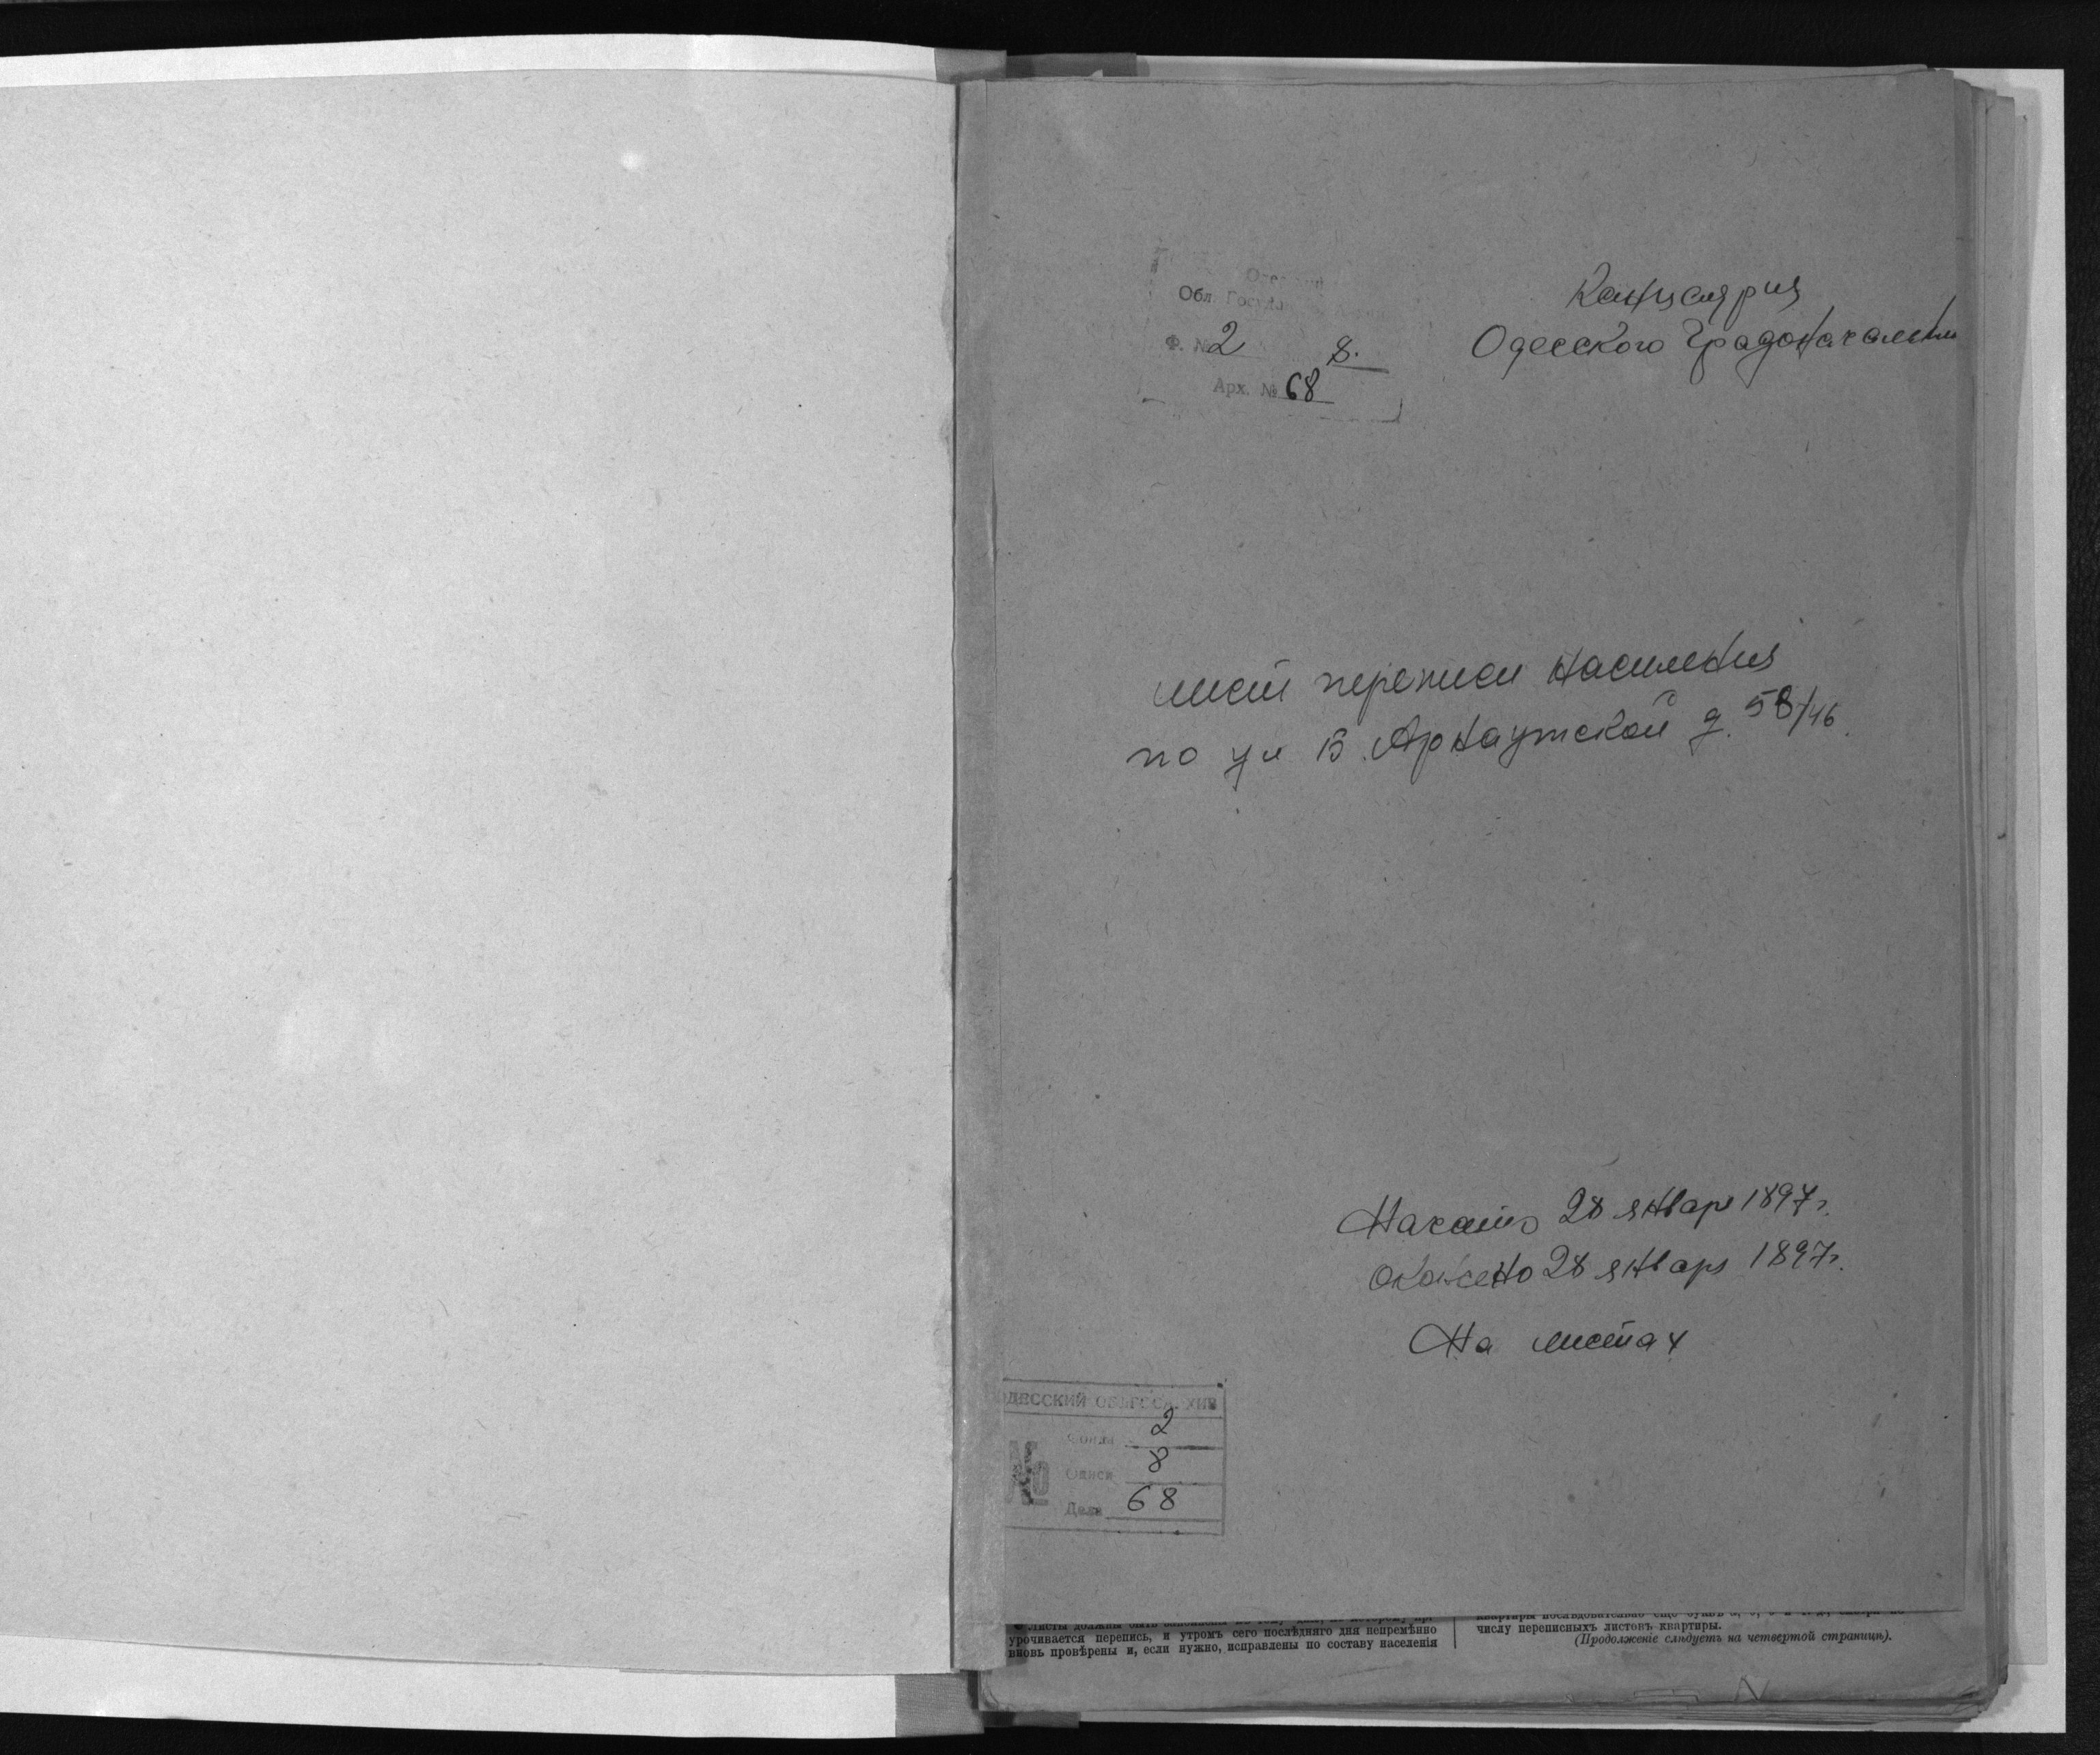 Обл. Госуда
Ф. № 2 8.
Арх. № 68
Канцелярия
Одесского Градоначальни
лист переписи населения
по ул Б. Арнаутской д. 58/46.
Начато 28 январь 1897 г.
Окончено 28 январь 1897 г.
На листах
ОДЕССКИЙ ОБЛГОСАРХИВ
№
Фонда 2
Описи 8
Дела 68
урочивается перепись, и утромъ сего послѣдняго дня непремѣнно
вновь провѣрены и, если нужно, исправлены по составу населенія
числу переписныхъ листовъ квартиры.
(Продолженіе слѣдуетъ на четвертой страницѣ).